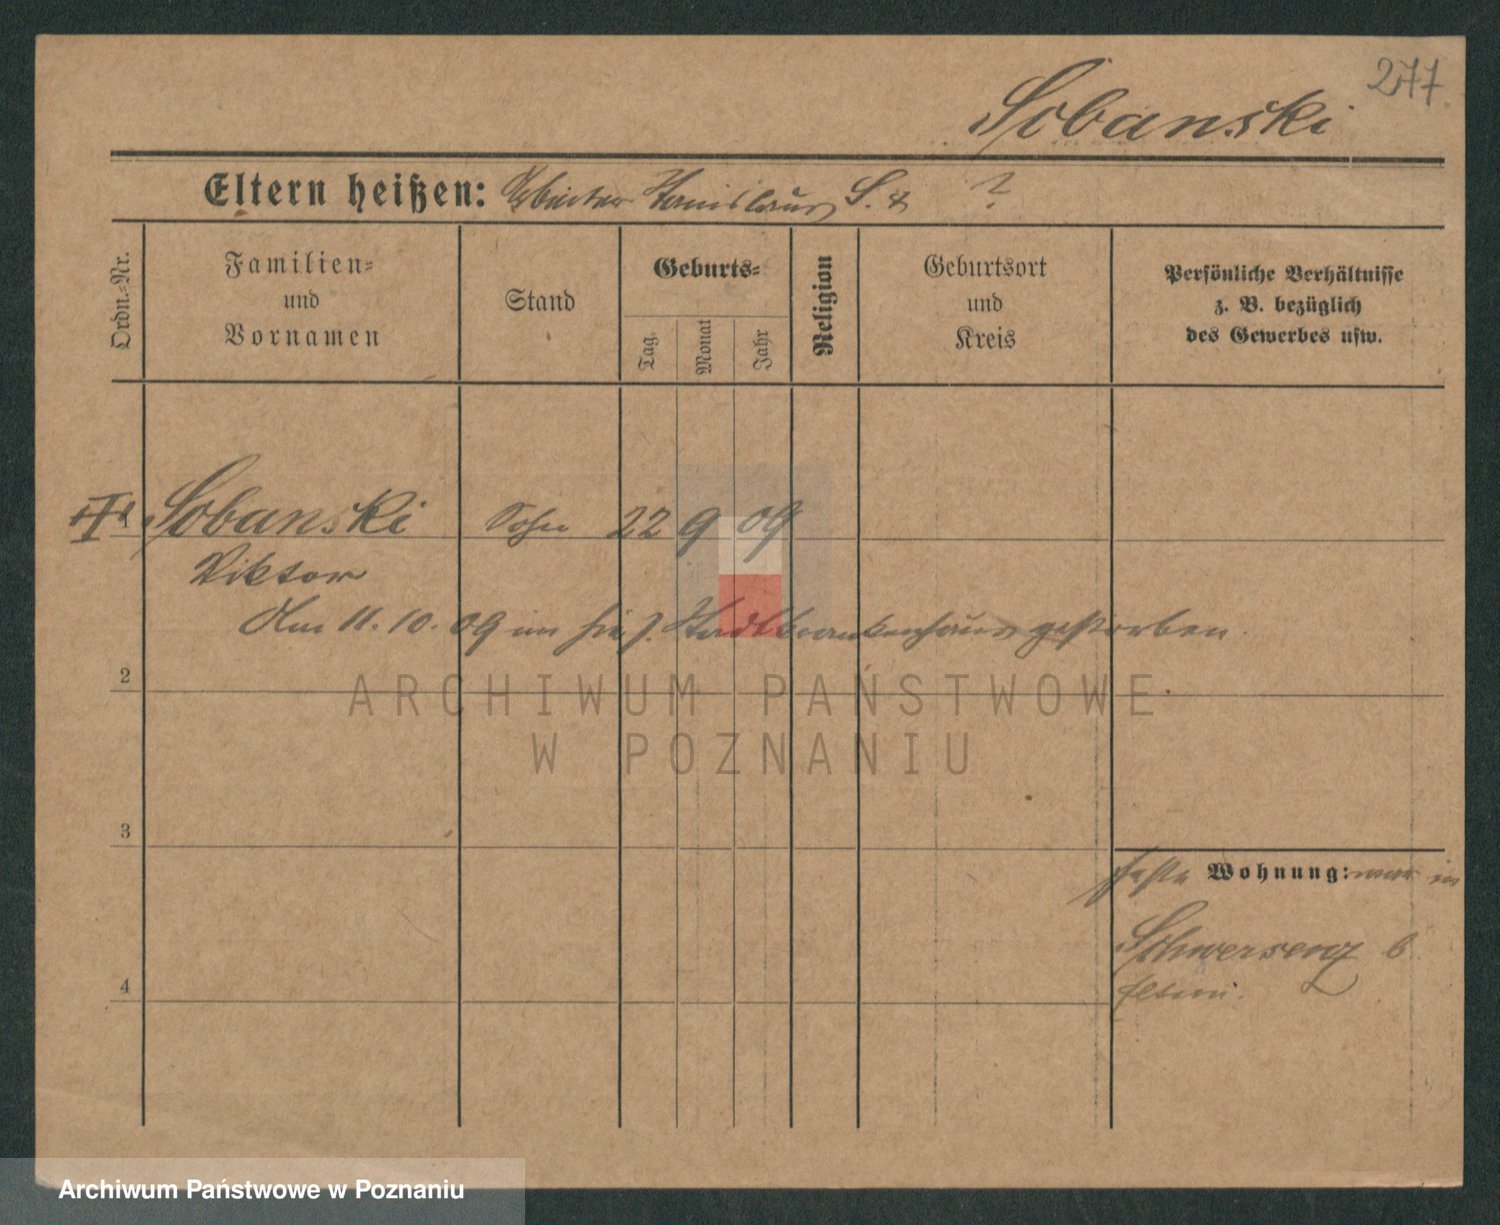 277.
Sobanski
Eltern heißen: Arbeiter Stanislaus S. & ?
Ordn.=Nr.
Familien=
und
Vornamen
Stand
Geburts=
Tag.
Monat
Jahr
Religion
Geburtsort
und
Kreis
Persönliche Verhältnisse
z. B. bezüglich
des Gewerbes usw.
1 Sobanski Sohn 22 9 09
Viktor
Am 11. 10. 09 im hies. Stadtkrankenhaus gestorben.
2
3
4
feste Wohnung: war in
Schwersenz b.
Eltern.
ARCHIWUM PAŃSTWOWE
W POZNANIU
Archiwum Państwowe w Poznaniu